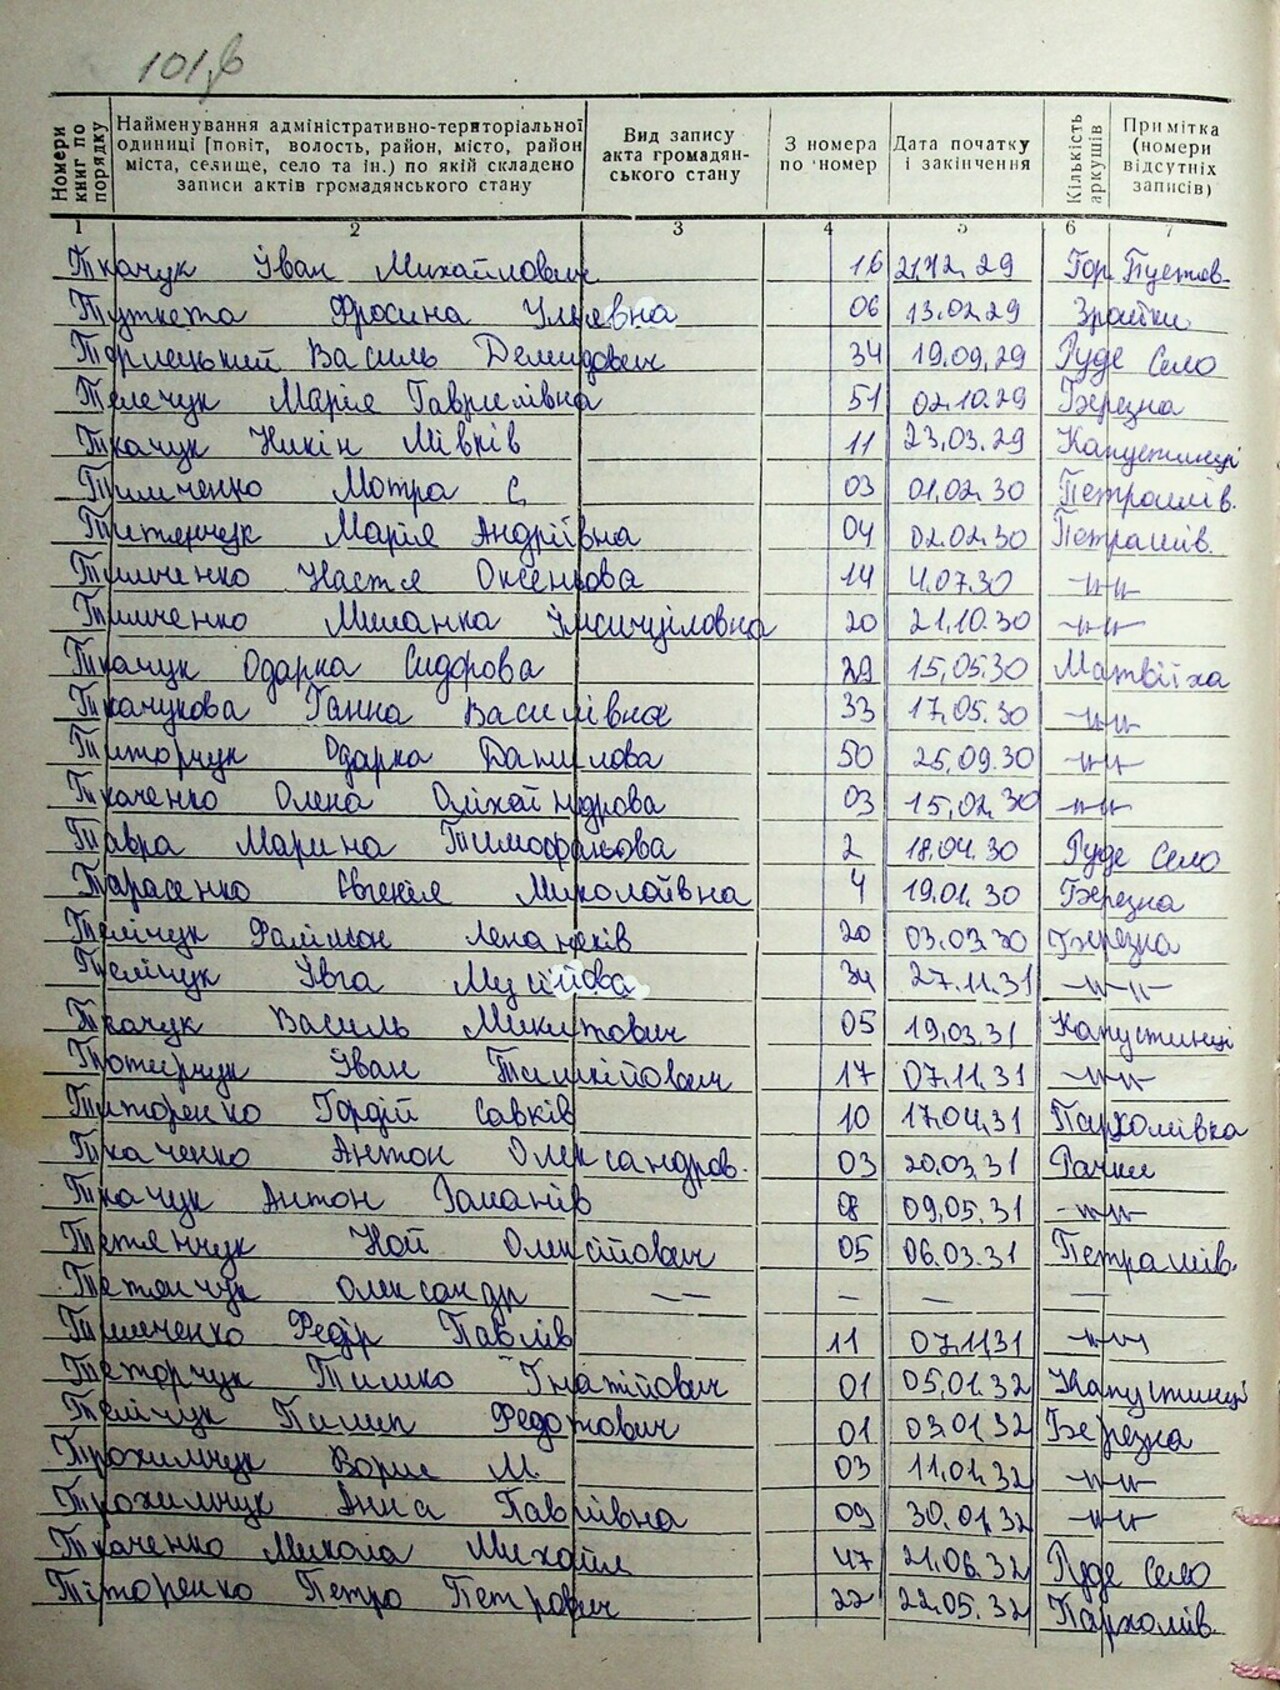 101,б
Номери книг по порядку
Найменування адміністративно-територіальної одиниці [повіт, волость, район, місто, район міста, селище, село та ін.) по якій складено записи актів громадянського стану
Вид запису акта громадян-ського стану
З номера по номер
Дата початку і закінчення
Кількість аркушів
Примітка (номери відсутніх записів)
1 2 3 4 5 6 7
Ткачук Іван Михайлович 16 21.12.29 Гор. Пустов.
Фросина 06 13.02.29 Зрайки
Василь Демидович 34 19.09.29 Руде Село
Телечук Марія Гаврилівна 51 02.10.29 Березна
Ткачук Никін 11 23.03.29 Капустинці
Тимченко Мотра С. 03 01.02.30 Петрашів.
Марія Андріївна 04 02.02.30 Петрашів.
Тимченко Настя Оксентова 14 4.07.30 -"-"-
Тимченко Миланка 20 21.10.30 -"-"-
Ткачук Одарка Сидорова 29 15.05.30 Матвіїха
Ткачукова Ганна Василівна 33 17.05.30 -"-"-
Титорчук Одарка Данилова 50 25.09.30 -"-"-
Ткаченко Олена 03 15.02.30 -"-"-
Тавра Марина 2 18.04.30 Руде Село
Тарасенко Євгенія Миколаївна 4 19.01.30 Березна
Телічук 20 03.03.30 Березна
Телічук Івга Мусійова 34 27.11.31 -"-"-
Ткачук Василь Микитович 05 19.03.31 Капустинці
Іван 17 07.11.31 -"-"-
Титоренко Гордій Савків 10 17.04.31 Пархомівка
Ткаченко Антон Олександров. 03 20.03.31 Рачки
Ткачук Антон Романів 08 09.05.31 -"-"-
Тетянчук Ной Олексійович 05 06.03.31 Петрашів.
Тетянчук Олександр — — — — —
Тимченко Федір Павлів 11 07.11.31 -"-"-
Тимко Гнатійович 01 05.01.32 Капустинці
Телічук Пилип Федотович 01 03.01.32 Березна
Трохимчук Борис М. 03 11.01.32 -"-"-
Трохимчук Анна Павлівна 09 30.01.32 -"-"-
Ткаченко Микола Михайл 47 21.06.32 Руде Село
Тіторенко Петро Петрович 22 22.05.32 Пархомів.